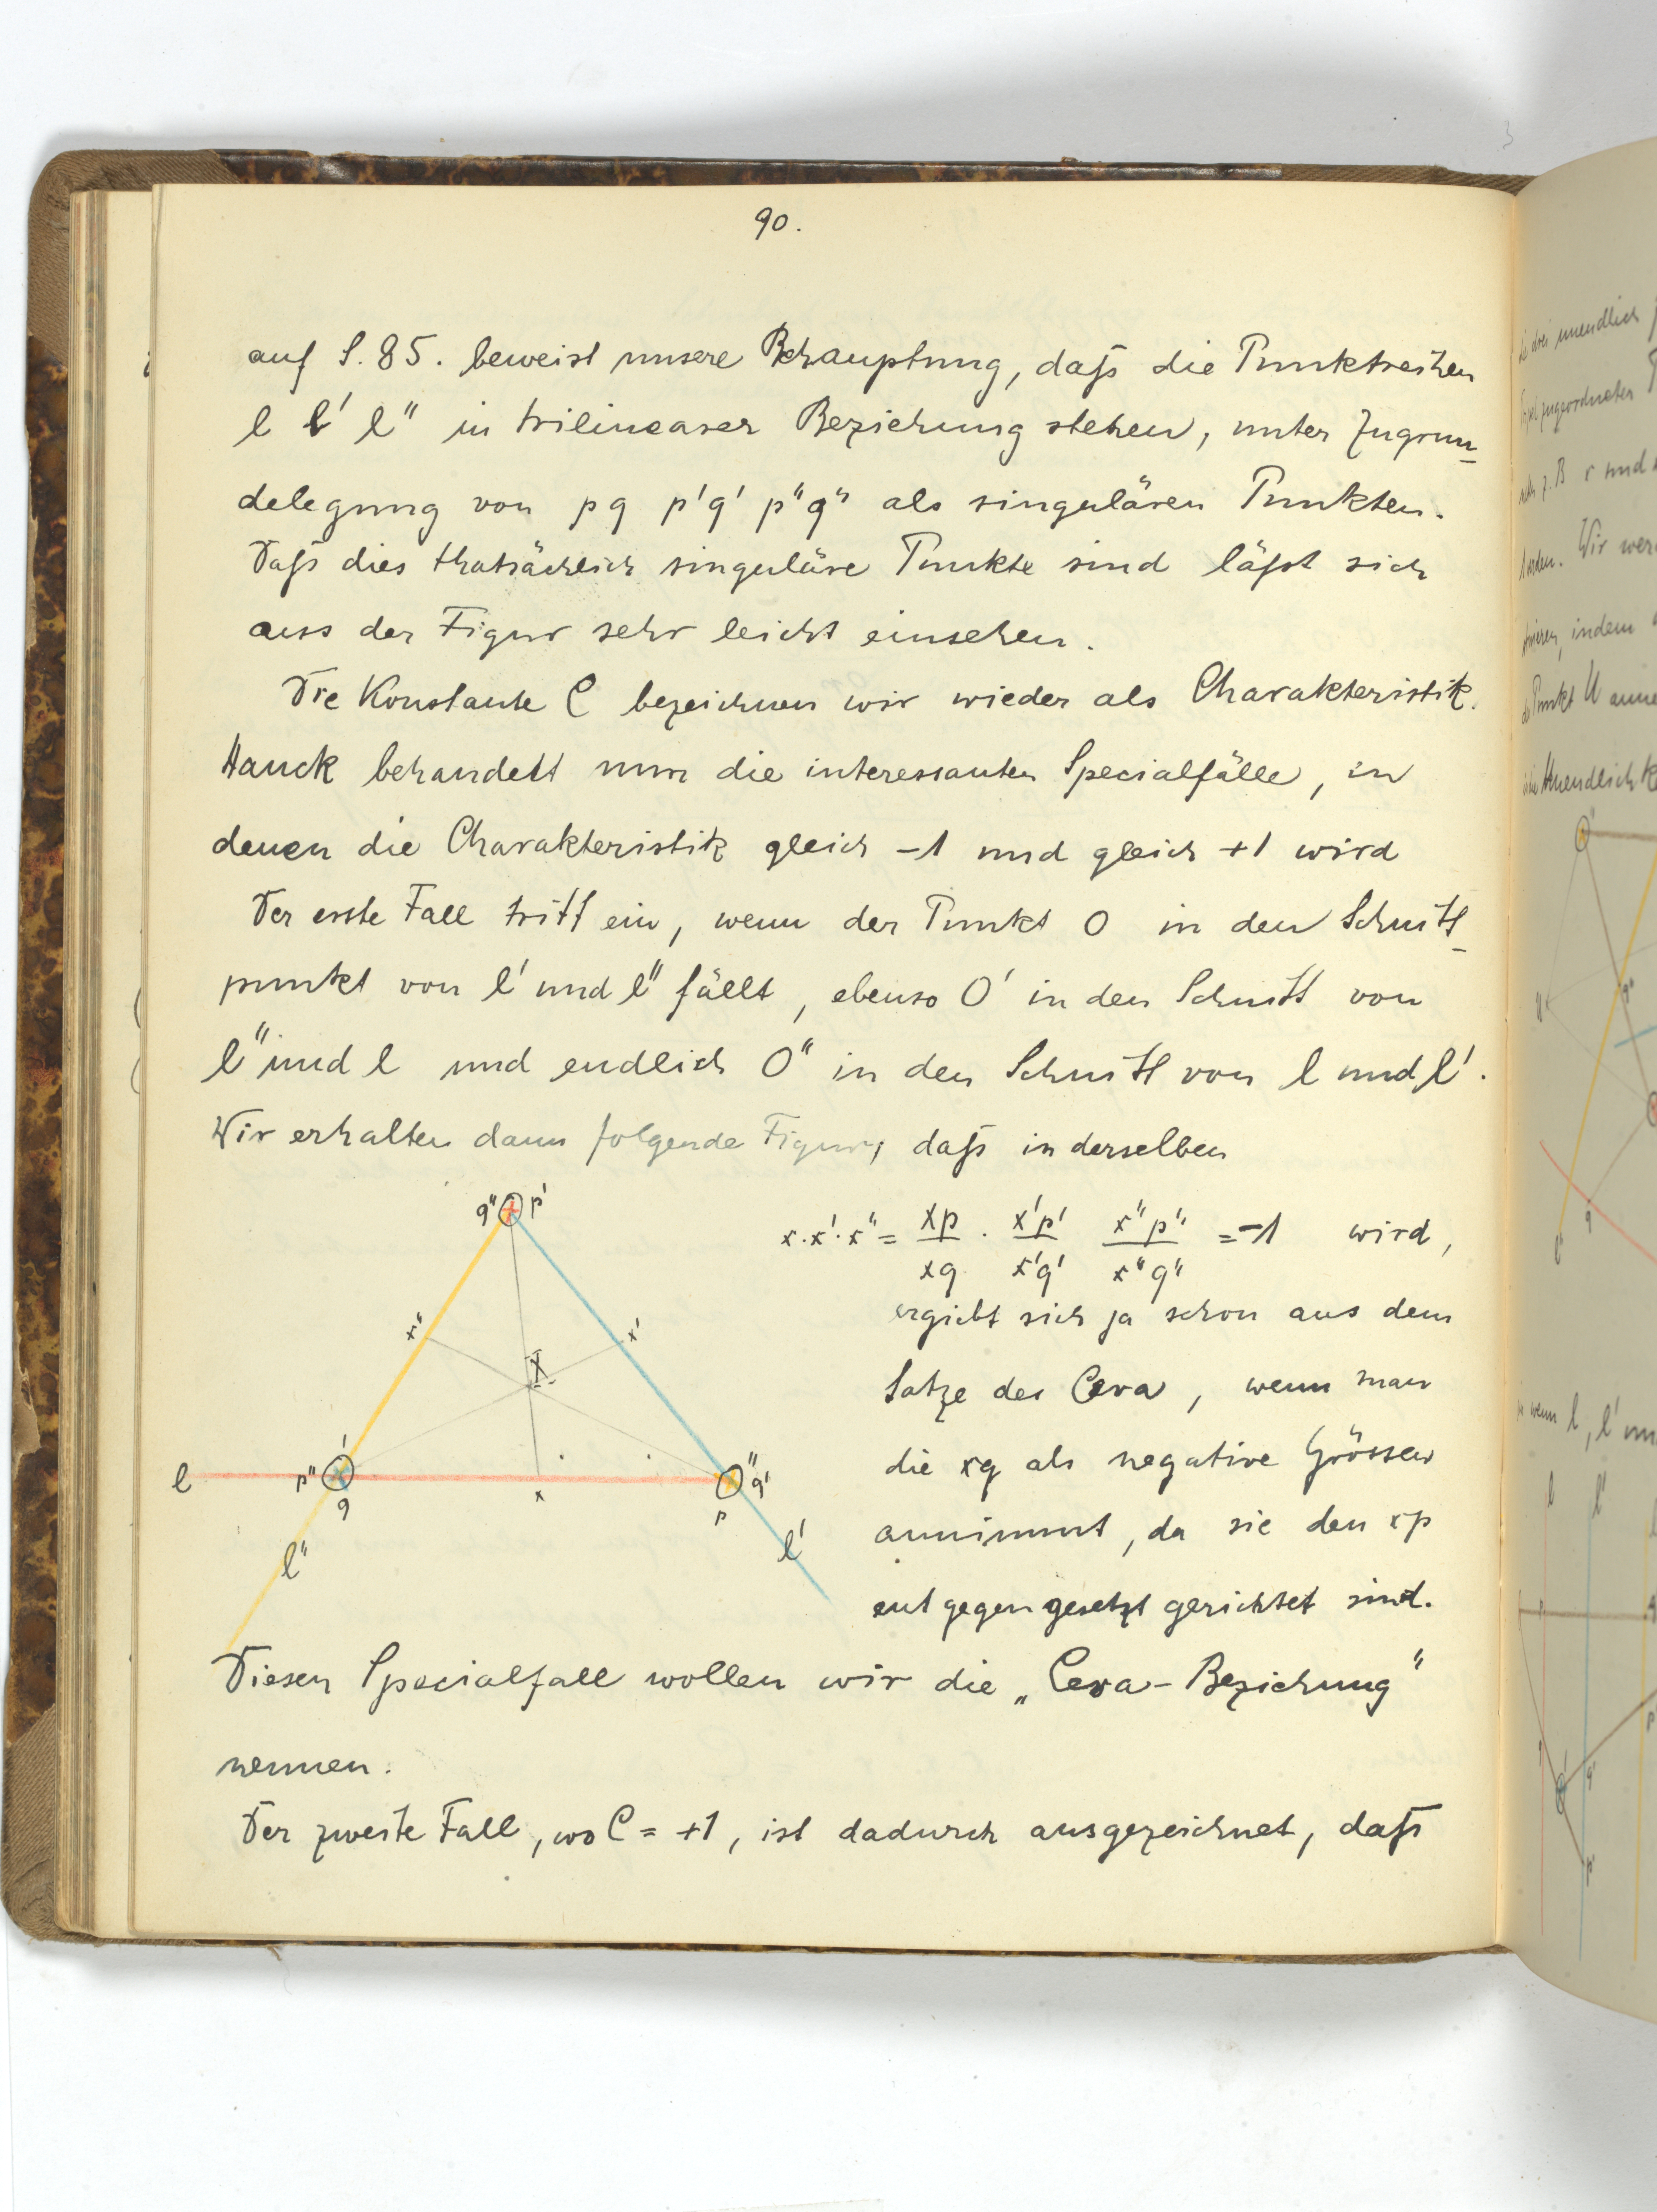 90.
auf S. 85. beweist unsere Behauptung, daſs die Punktreihen
l l' l" in trilinearer Beziehung stehen, unter Zugrun-
delegung von p q p' q' p" q" als singulären Punkten.
Daſs dies thatsächlich singuläre Punkte sind läſst sich
aus der Figur sehr leicht einsehen.
Die Konstante C bezeichnen wir wieder als Charakteristik.
Hauck behandelt nun die interessanten Specialfälle, in
denen die Charakteristik gleich -1 und gleich +1 wird
Der erste Fall tritt ein, wenn der Punkt O in den Schnitt-
punkt von l' und l" fällt, ebenso O' in den Schnitt von
l" und l und endlich O" in den Schnitt von l und l'.
Wir erhalten dann folgende Figur, daſs in derselben
q" p'
x·x'·x" = xp/xq · x'p'/x'q' x"p"/x"q" = -1 wird,
ergiebt sich ja schon aus dem
x" x'
X
Satze des Ceva, wenn man
die xq als negative Grössen
l p" ' q x p " q'
annimmt, da sie den xp
l" l'
entgegengesetzt gerichtet sind.
Diesen Specialfall wollen wir die „Ceva-Beziehung"
nennen.
Der zweite Fall, wo C = +1, ist dadurch ausgezeichnet, daſs
drei unendlich
zugeordneten
z.B r und
Wir wer
indem
Punkt U anne
Unendlichk
q"
U
q
wenn l, l' un
l l'
q'
p'